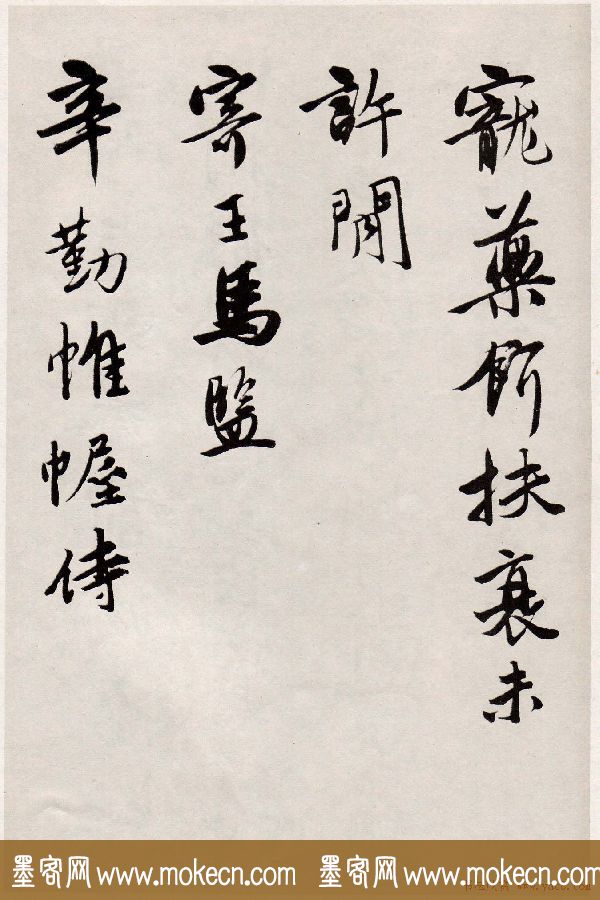 寵藥餌扶衰未
許閒
寄王馬監
辛勤帷幄侍
墨客网 www.mokecn.com 墨客网 www.mokecn.com